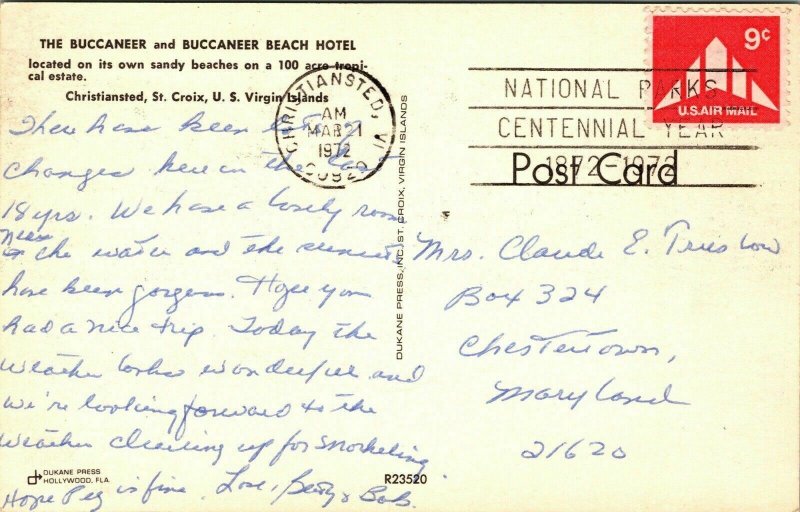 THE BUCCANEER and BUCCANEER BEACH HOTEL
located on its own sandy beaches on a 100 acre tropi-
cal estate.
Christiansted, St. Croix, U. S. Virgin Islands
There have been
changes here in the last
18 yrs. We have a lovely room
near
the water and the sunsets
have been gorgeous. Hope you
had a nice trip. Today the
weather looks wonderful and
we're looking forward to the
weather clearing up for snorkeling
Hope Peg is fine. Love, Betty & Bob.
DUKANE PRESS
HOLLYWOOD, FLA
R23520
DUKANE PRESS, INC. ST. CROIX, VIRGIN ISLANDS
CHRISTIANSTED, VI
AM
MAR 21
1972
00820
NATIONAL PARKS
CENTENNIAL YEAR
1872-1972
9¢
U.S. AIR MAIL
Post Card
Mrs. Claude E. Truslow
Box 324
Chestertown,
Maryland
21620